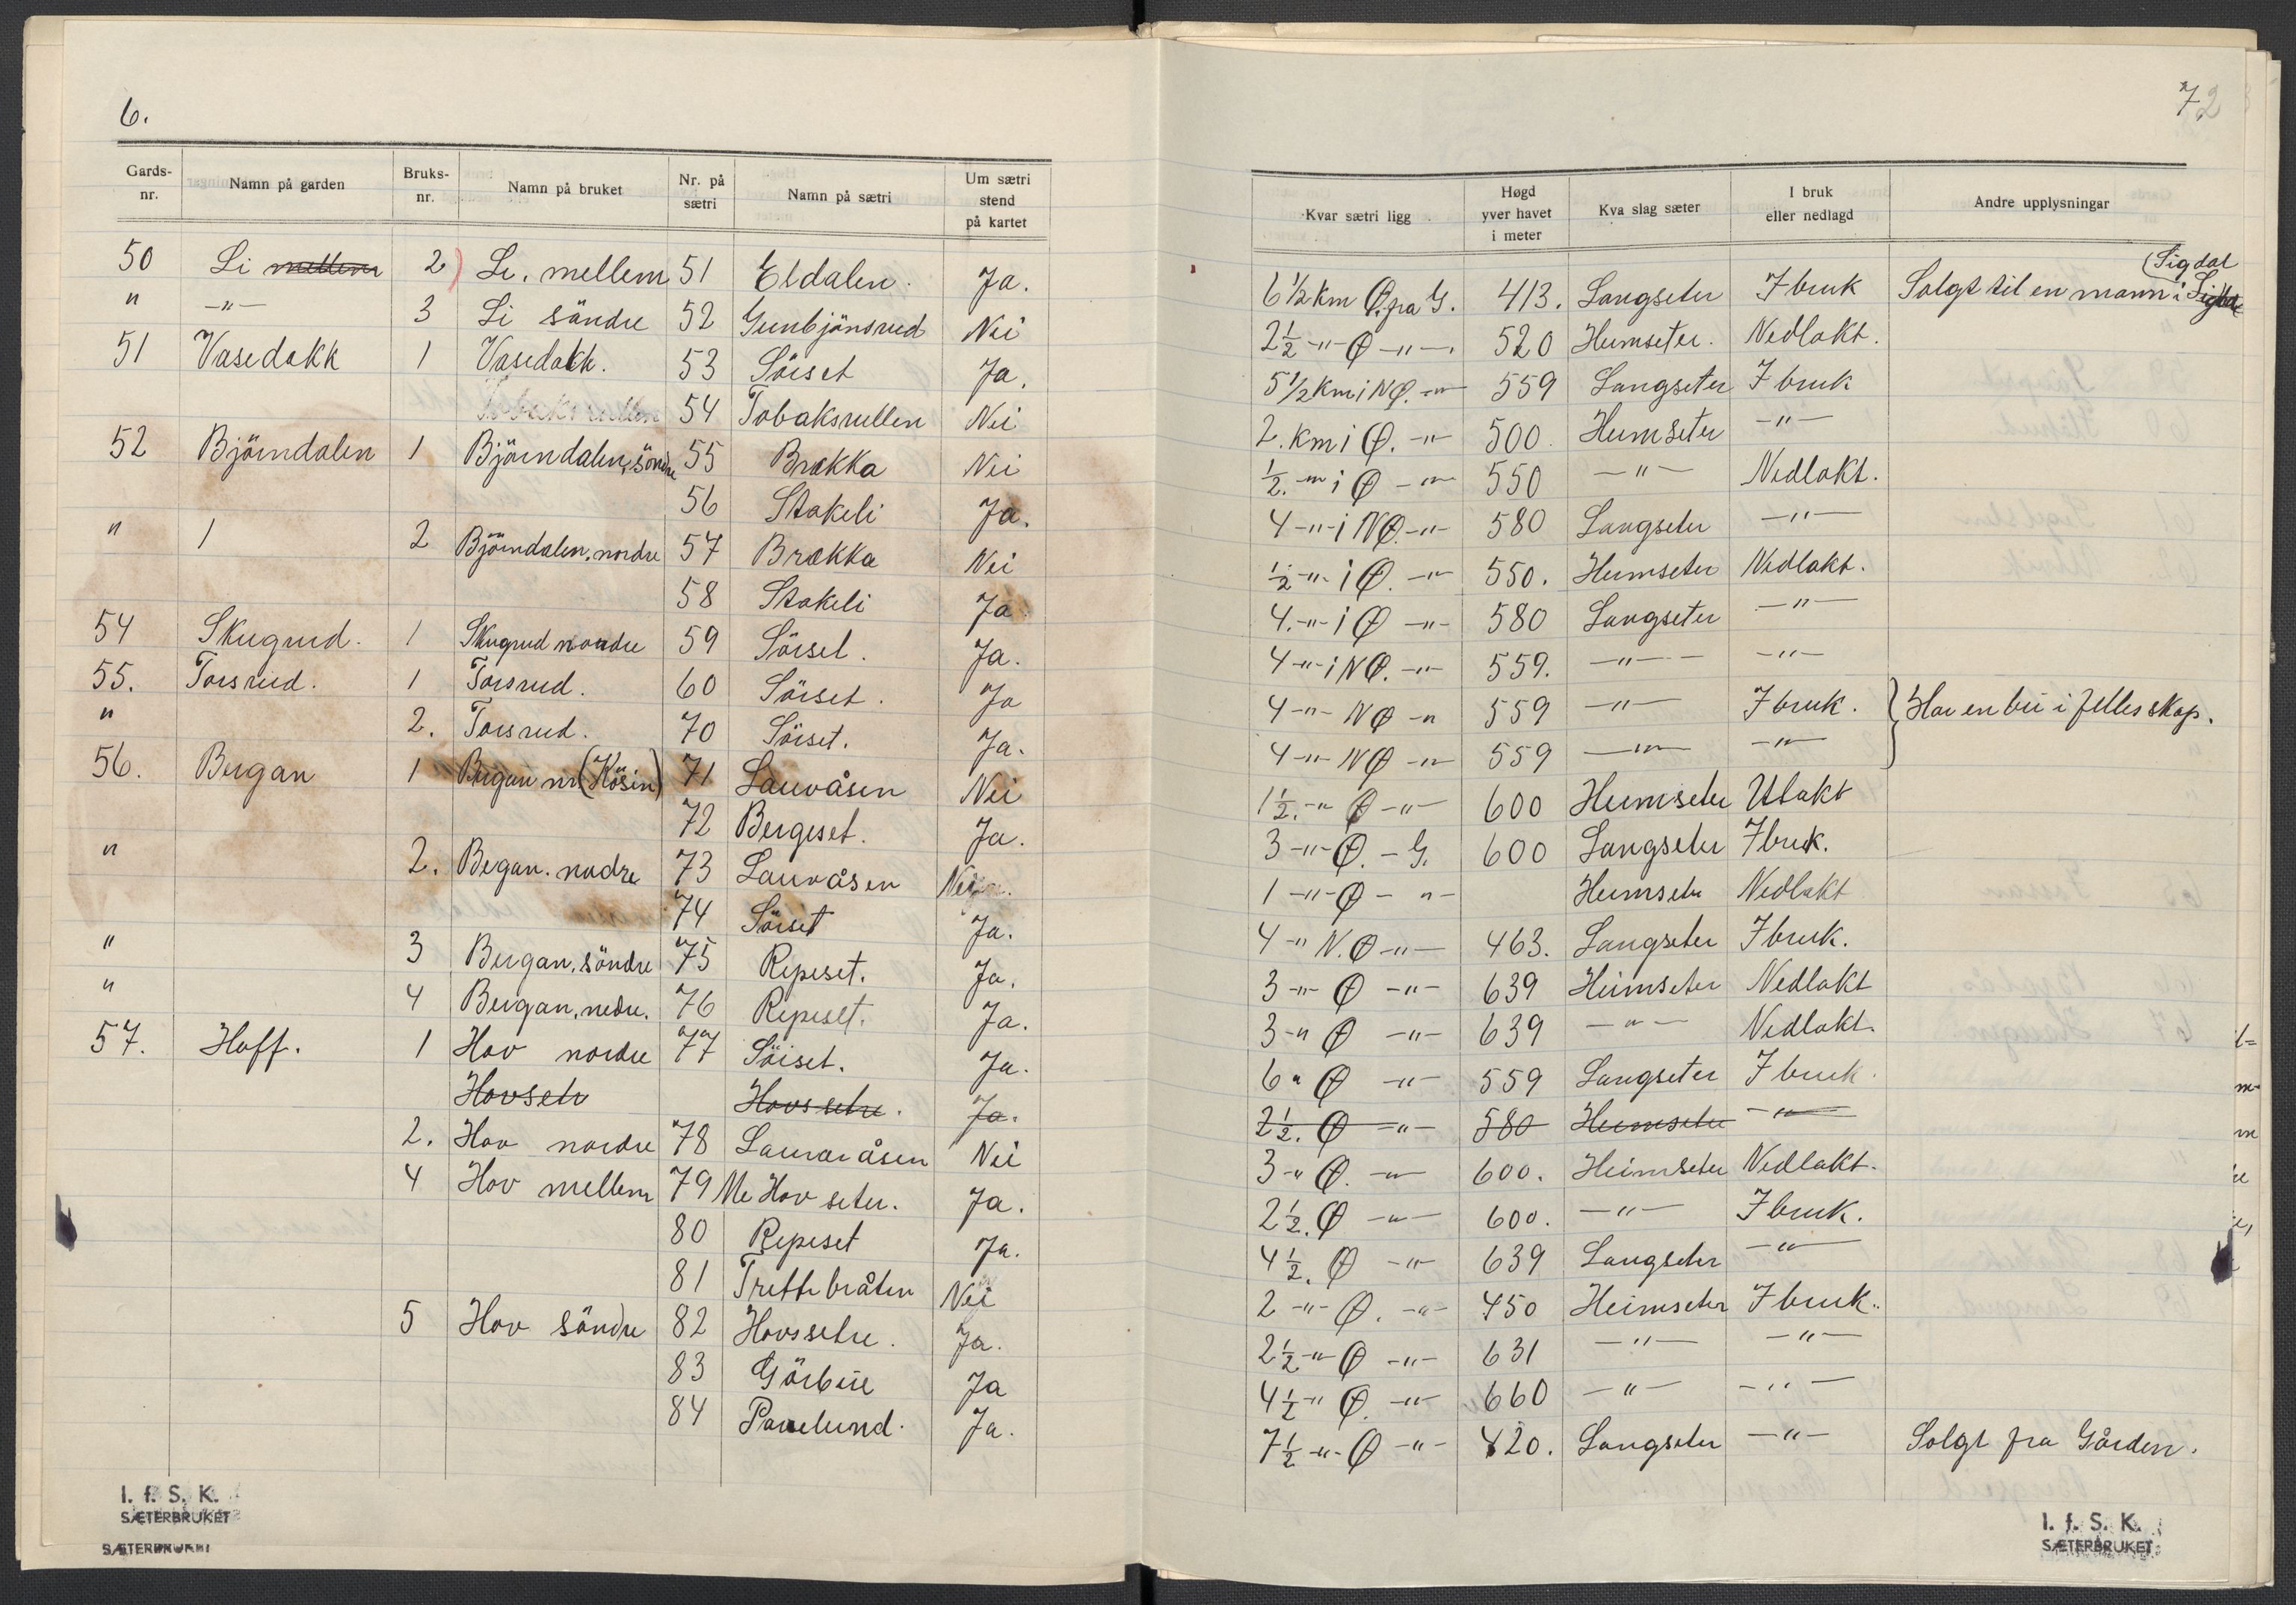 6.
Gards-nr. Namn på garden Bruks-nr. Namn på bruket Nr. på sætri Namn på sætri Um sætri stend på kartet
50 Li mellem 2) Li, mellem 51 Eldalen. Ja.
" -"- 3 Li söndre 52 Gunbjönsrud Nei
51 Vasedokk 1 Vasedokk. 53 Sörset Ja.
Tobaksrullen 54 Tobaksrullen Nei
52 Björndalen 1 Björndalen, söndre 55 Brokka Nei
56 Stokeli Ja.
" 1 2 Björndalen, nordre 57 Brokka Nei
58 Stokeli Ja
54 Skugrud. 1 Skugrud nordre 59 Sörset. Ja.
55. Torsrud. 1 Torsrud. 60 Sörset. Ja
" 2. Torsrud. 70 Sörset. Ja.
56. Bergan 1 Bergan nr (Kösin) 71 Lauvåsen Nei
72 Bergeset. Ja.
" 2. Began. nodre 73 Lauvåsen Nei
74 Sörset Ja.
" 3 Bergan, söndre 75 Repeset. Ja.
" 4 Bergan, nedre. 76 Repeset. Ja.
57. Hoff. 1 Hov nordre 77 Söiset. Ja.
Hovsetr Hovssetre. Ja.
2. Hov nordre 78 Lauvåsen Nei
4 Hov mellem 79 Me Hov seter. Ja.
80 Repeset Ja.
81 Trettebråten Nei
5 Hov söndre 82 Hovssetre. Ja.
83 Görbüe Ja
84 Pavelund. Ja.
I. f. S. K.
SÆTERBRUKET
SÆTERBRUKET
7.2
Kvar sætri ligg Høgd yver havet i meter Kva slag sæter I bruk eller nedlagd Andre upplysningar
(Sigdal
6 1/2 km Ø. fra G. 413. Langseter I bruk Solgt til en mann i Sigdal
2 1/2 -"- Ø -"- 520 Heimseter. Nedlakt.
5 1/2 km i NØ. -"- 559 Langseter I bruk
2. km i Ø. -"- 500 Heimseter -"-
1/2. -"- i Ø -"- 550 -"- Nedlakt.
4 -"- i NØ. -"- 580 Langseter -"-
1/2 -"- i Ø. -"- 550. Heimseter Nedlakt.
4. -"- i Ø -"- 580 Langseter -"-
4 -"- i NØ. -"- 559. -"- -"-
4 -"- NØ -"- 559 -"- I bruk. } Har en bu i fellesskap.
4 -"- NØ -"- 559 -"- -"-
1 1/2. -"- Ø -"- 600 Heimseter Utlakt
3 -"- Ø. - G. 600 Langseter I bruk.
1 -"- Ø - "- Heimseter Nedlakt
4 -" N.Ø -"- 463. Langseter I bruk.
3 -"- Ø -"- 639 Heimseter Nedlakt
3 -" Ø -"- 639 -"- Nedlakt.
6 " Ø -"- 559 Langseter I bruk.
2 1/2. Ø -"- 580 Heimseter -"-
3 -" Ø. -"- 600. Heimseter Nedlakt.
2 1/2. Ø -"- 600. -"- I bruk.
4 1/2. Ø -"- 639 Langseter -"-
2 -"- Ø. -"- 450 Heimseter I bruk.
2 1/2 -"- Ø -"- 631 -"- -"-
4 1/2 -" Ø. -"- 660 -"- -"-
7 1/2 -"- Ø -"- 420. Langseter -"- Solgt fra Gården.
I. f. S. K.
SÆTERBRUKET